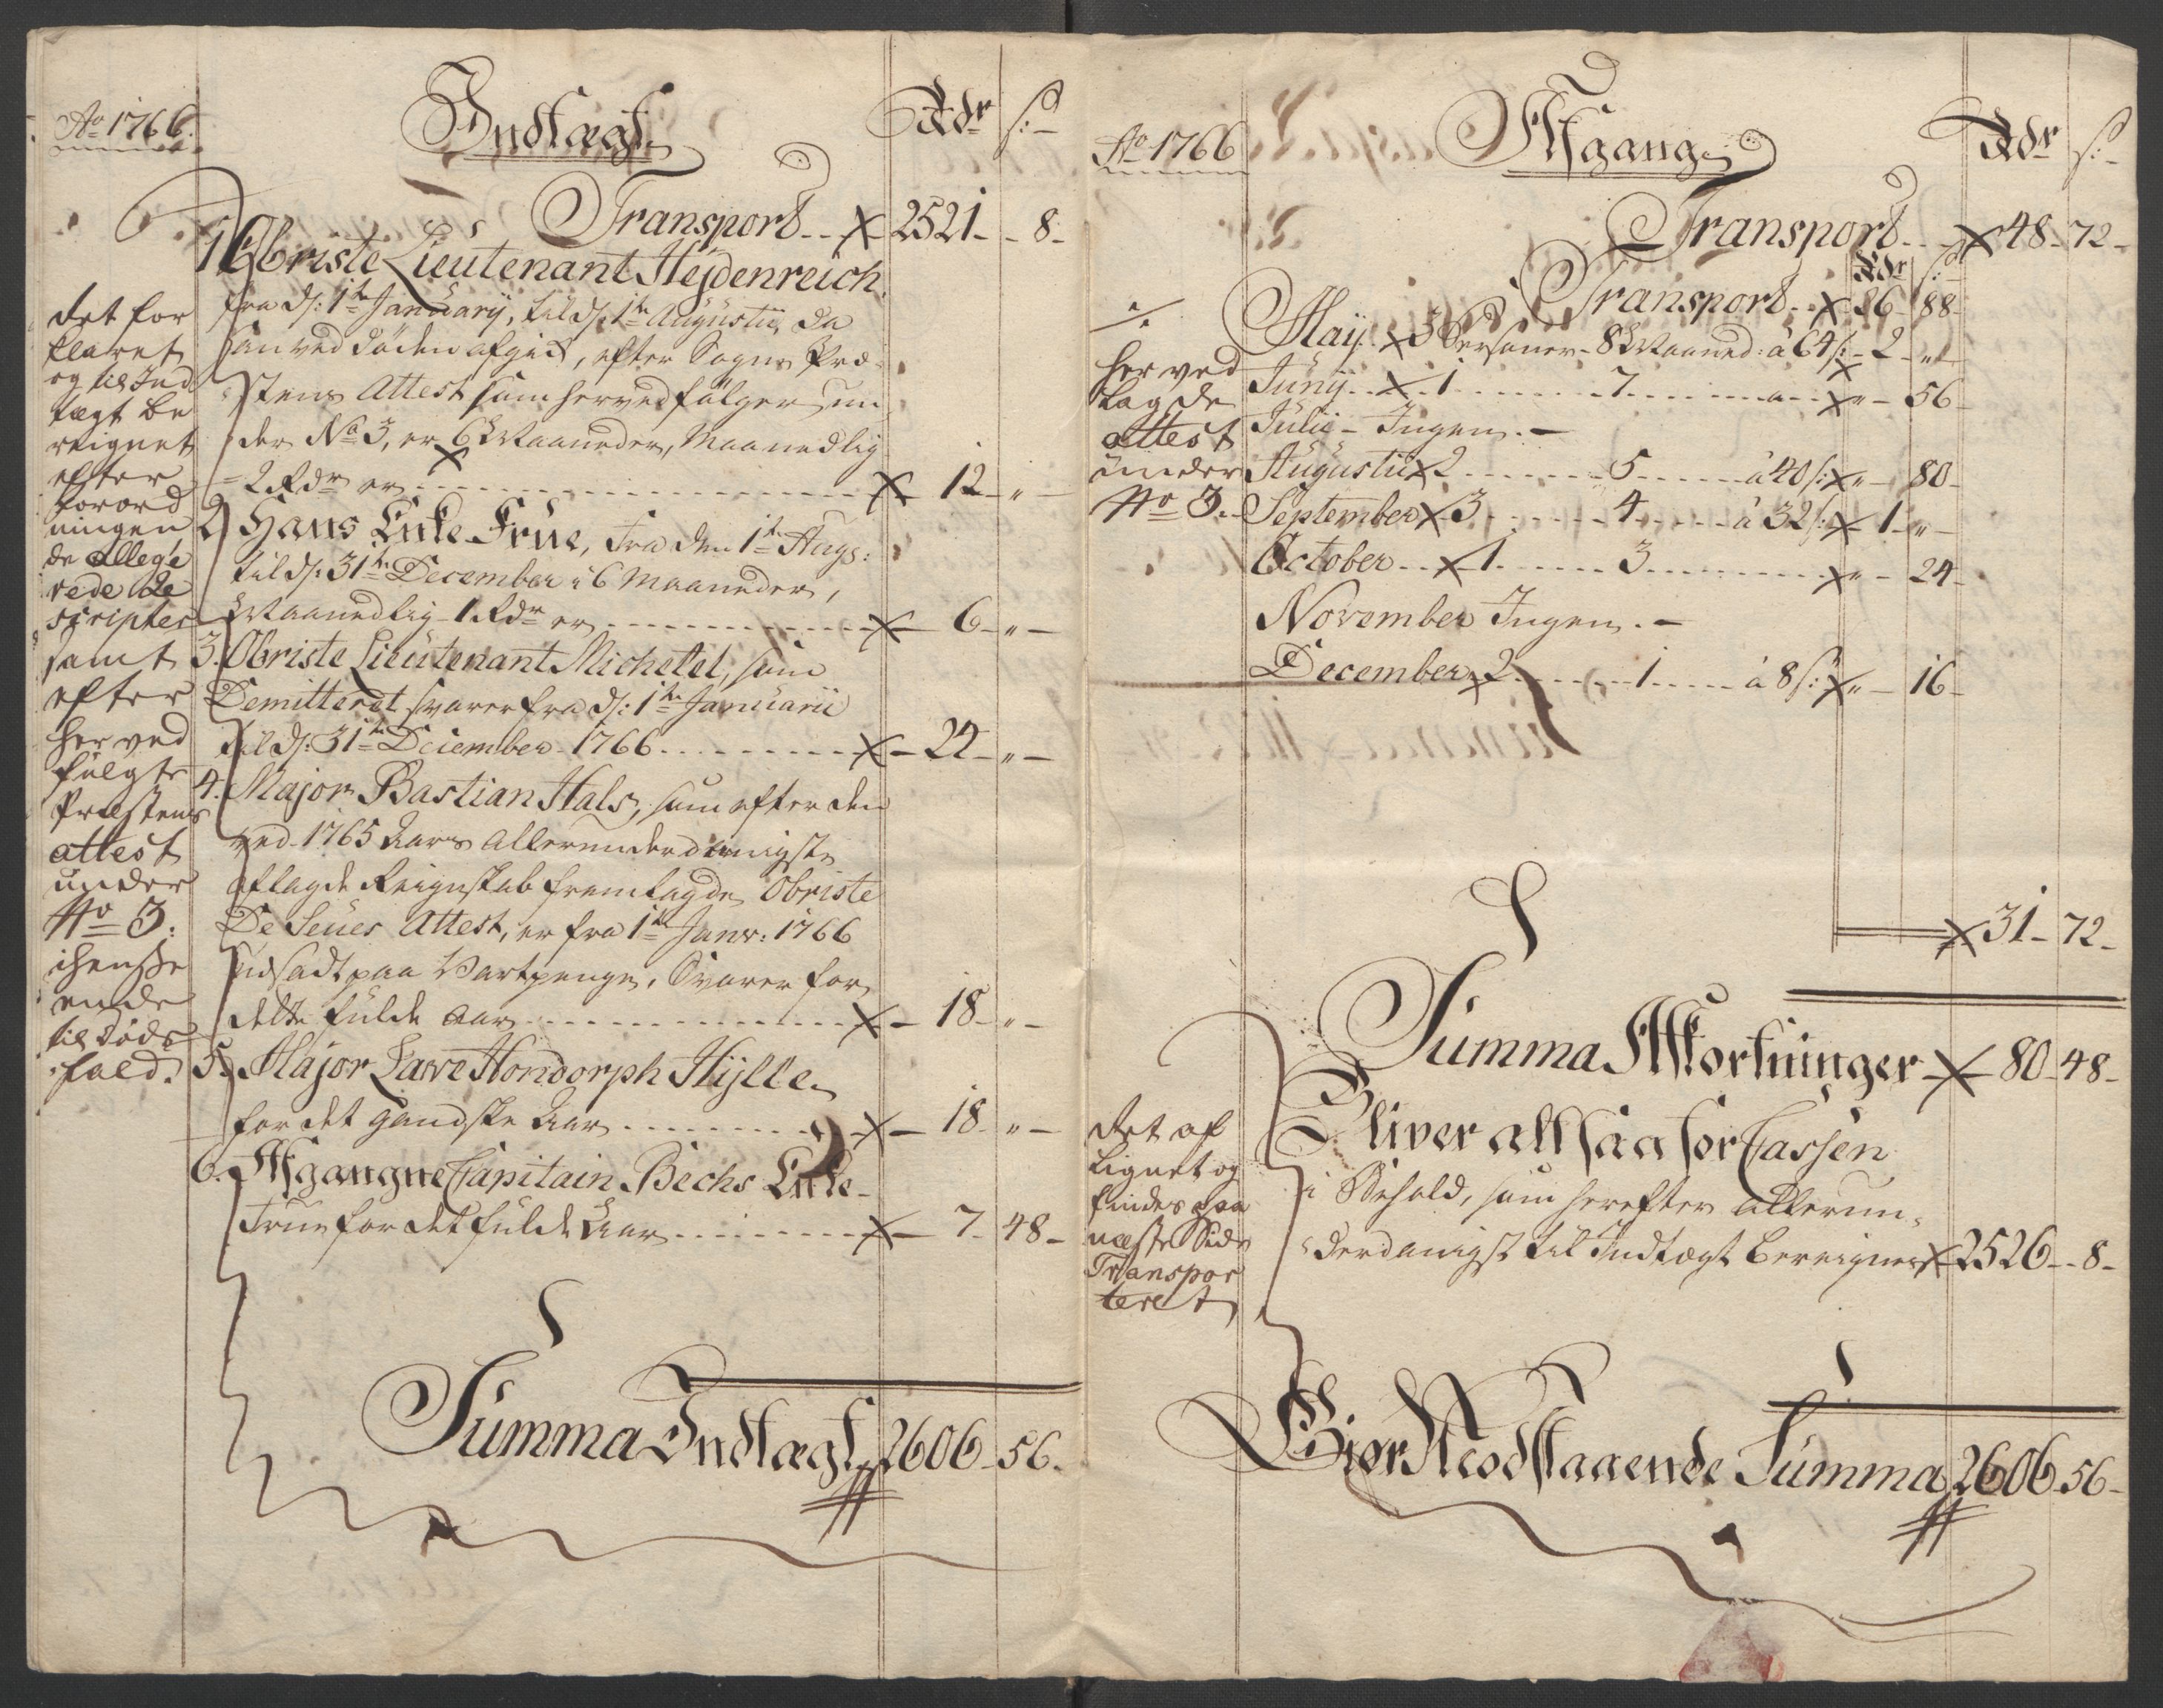 Ao 1766.
Indtægt
Rdr s:
Transport -- 2521 - 8 -
1. Obriste Lieutenant Hejdenreich
fra d: 1te Januarij, til d: 1te Augustii, da
han ved Døden afgik, efter Sogne Præ-
stens Attest som herved følger un-
der No 3, er 6 Maaneder, Maanedlig
= 2 Rdr er - 12 - " -
2. Hans Enke Frue, fra den 1te Augs:
til d: 31te December i 6 Maaneder,
Maanedlig 1 Rdr er - 6 - " -
3. Obriste Lieutenant Michelet, som
Demitteret svarer fra d: 1te Januarii
til d: 31te December 1766 - 24 - " -
4. Major Bastian Hals, som efter den
ved 1765 Aars allerunderdanigste
aflagde Reignskab fremlagde Obriste
De Seues Attest, er fra 1te Janr: 1766
udsadt paa Vartpenge, Svarer for
dette fulde Aar - 18 - " -
5. Major Lawe Hondorph Hylle
for det gandske Aar - 18 - " -
6. Afgangne Capitain Bechs Enke
Frue for det fulde Aar - 7 - 48 -
Summa Indtægt 2606 - 56 -
det for
klaret
og til Ind
tægt be
reignet
efter
forord
ningen
de allege
rede Re
scripter
samt
efter
her ved
fulgte
Præstens
attest
under
No 3:
ende
til døds
fald.
Ao 1766
Afgang
Rdr s:
Transport - 48 - 72 -
Rdr s:
Transport - 26 - 88 -
Maij 3 Personer - 8 Maaned: à 64 s: - 2 - " -
Junij 1 - 7 - " - 56 -
Julii - Ingen. -
Augustii 2 - 5 - à 40 s: " - 80 -
September 3 - 4 - à 32 s: 1 - " -
October 1 - 3 - " - 24 -
November Ingen. -
December 2 - 1 - à 8 s: " - 16 -
31 - 72 -
her ved
lagde
attest
under
No 3.
Summa Afkortninger 80 - 48 -
Bliver altsaa for Cassen
i Behold, som herefter allerun-
derdanigst til Indtægt bereignes 2526 - 8 -
det af
lignet og
findes paa
næste Side
Transpor
teret
Giør Modstaaende Summa 2606 - 56 -